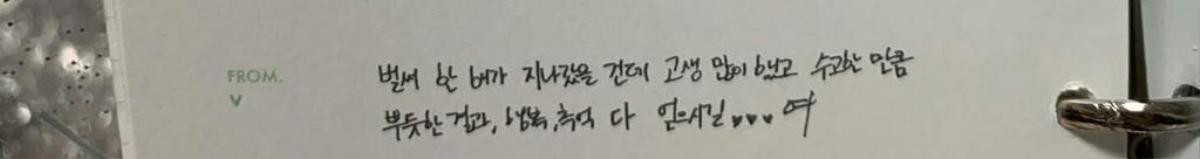 FROM.
V
벌써 한 해가 지나갔을 건데 고생 많이 했고 수고한 만큼
뿌듯한 결과, 행복, 추억 다 얻으시길 ♥♥♥ 여